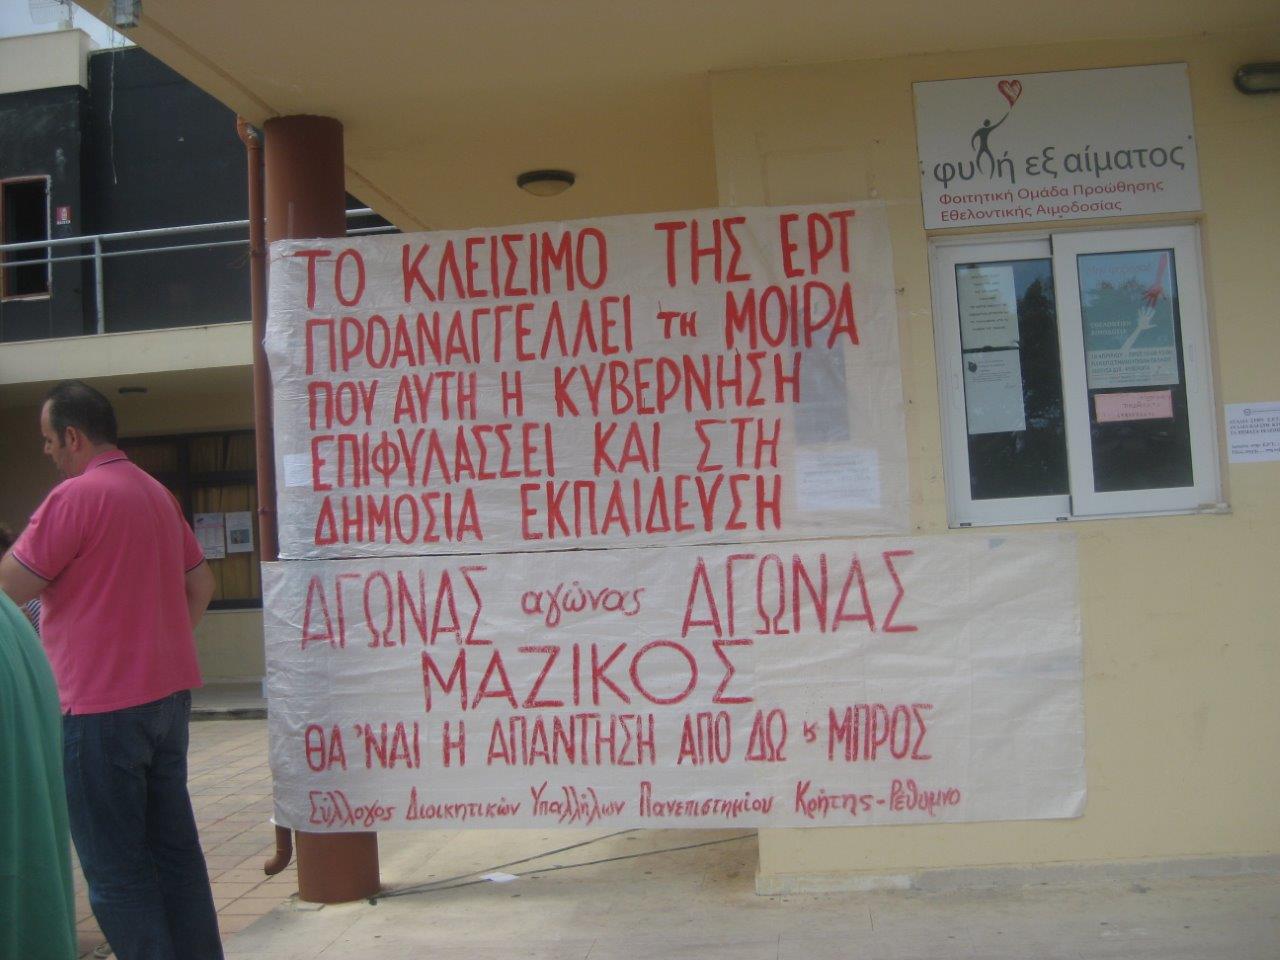 φυλή εξ αίματος
Φοιτητική Ομάδα Προώθησης
Εθελοντικής Αιμοδοσίας
ΤΟ ΚΛΕΙΣΙΜΟ ΤΗΣ ΕΡΤ
ΠΡΟΑΝΑΓΓΕΛΛΕΙ τη ΜΟΙΡΑ
ΠΟΥ ΑΥΤΗ Η ΚΥΒΕΡΝΗΣΗ
ΕΠΙΦΥΛΑΣΣΕΙ ΚΑΙ ΣΤΗ
ΔΗΜΟΣΙΑ ΕΚΠΑΙΔΕΥΣΗ
ΑΓΩΝΑΣ αγώνας ΑΓΩΝΑΣ
ΜΑΖΙΚΟΣ
ΘΑ 'ΝΑΙ Η ΑΠΑΝΤΗΣΗ ΑΠΟ ΔΩ ϗ ΜΠΡΟΣ
Σύλλογος Διοικητικών Υπαλλήλων Πανεπιστημίου Κρήτης - Ρέθυμνο
ΕΘΕΛΟΝΤΙΚΗ
ΑΙΜΟΔΟΣΙΑ